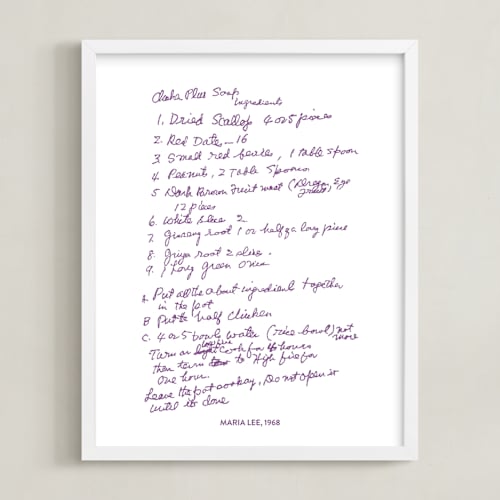 Plus Soup
Ingredients
1. Dried Scallops 4 or 5 pieces
2. Red Date — 16
3. Small red beans, 1 table spoon
4. Peanut, 2 Table Spoons
5 Dark Brown Fruit meat (Dragon Eye
fruit)
12 pieces
6. White 2
7. root 1 or half a long piece
8. root 2 slice.
9. 1 Long green onion
A. Put all the about ingredient together
in the pot
B Put the half chicken
C. 4 or 5 bowls water (rice bowl) not
more
Turn on low fire cook for 4 hours
then turn to High fire for
One hour.
Leave the pot, Do not open it
until it's done
MARIA LEE, 1968